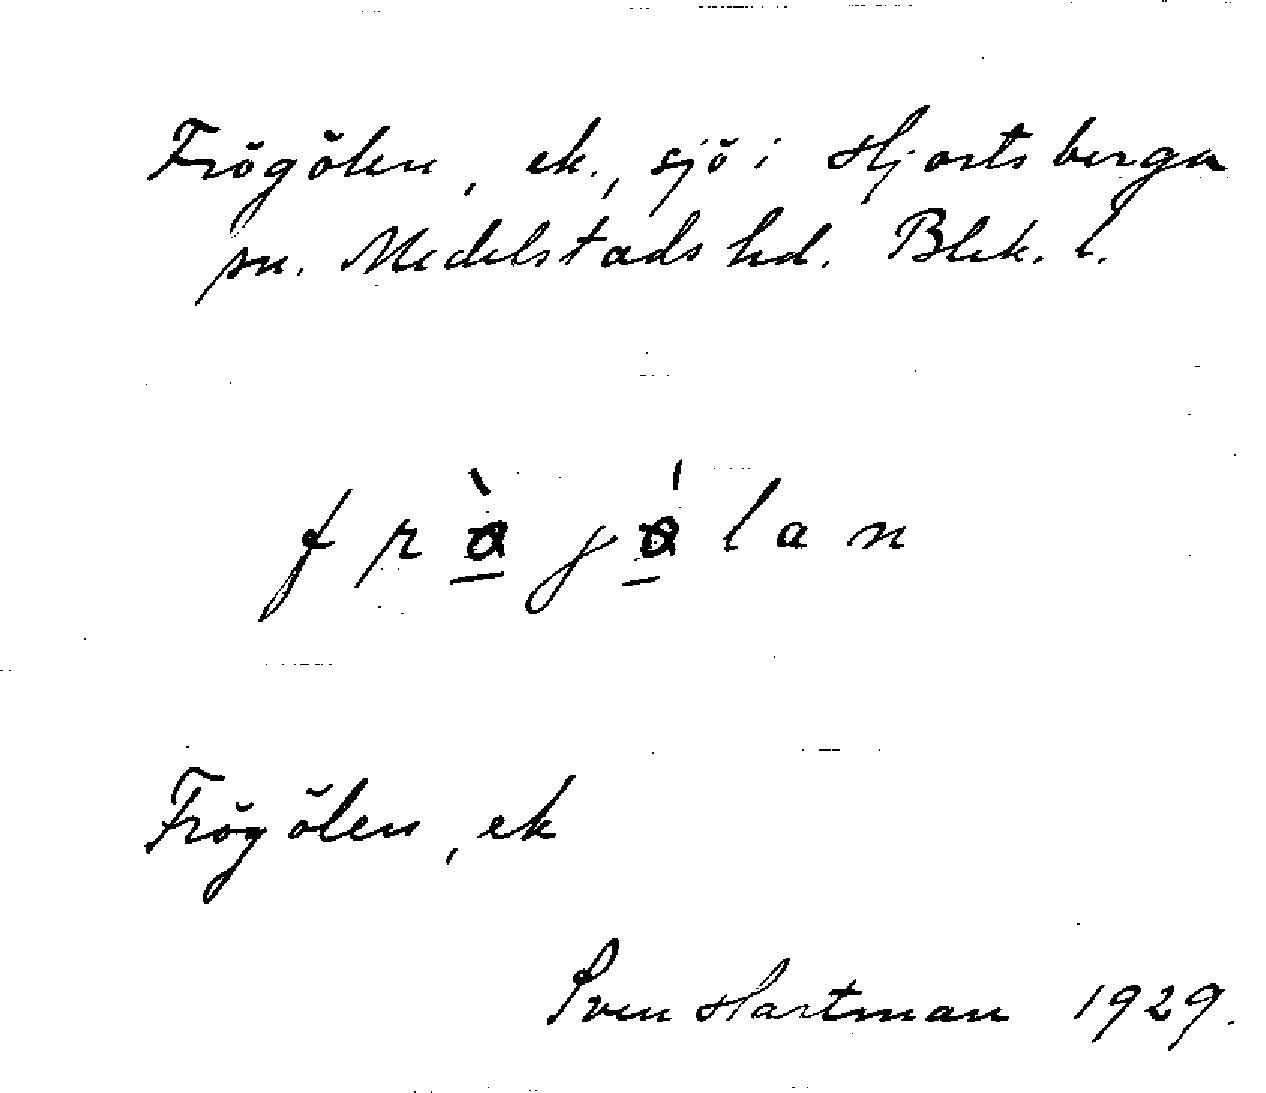 Frögölen, ek., sjö i Hjortsberga
sn. Medelstads hd. Blek. l.
Frögölen, ek
Sven Hartman 1929.